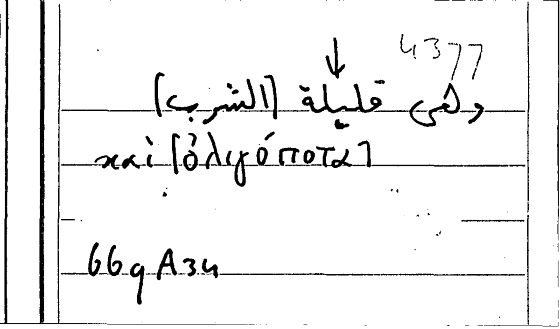 4377
وهى قليلة [الشرب]
καὶ [ὀλιγόποτα]
669 A 34